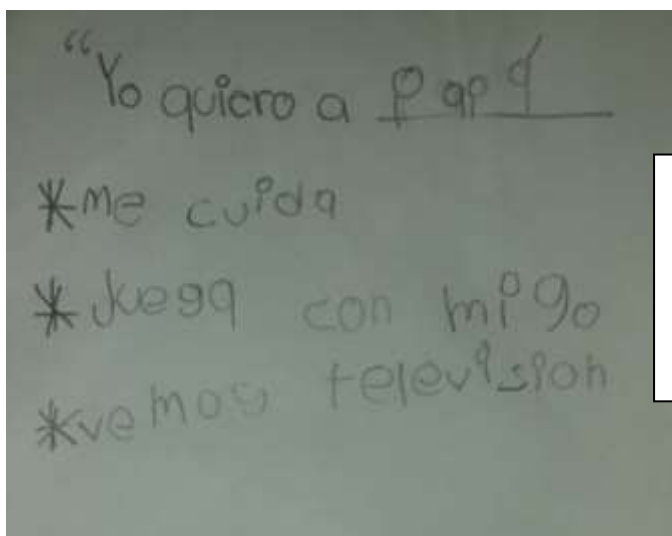 “Yo quiero a papá
*me cuida
*juega con migo
*vemos television